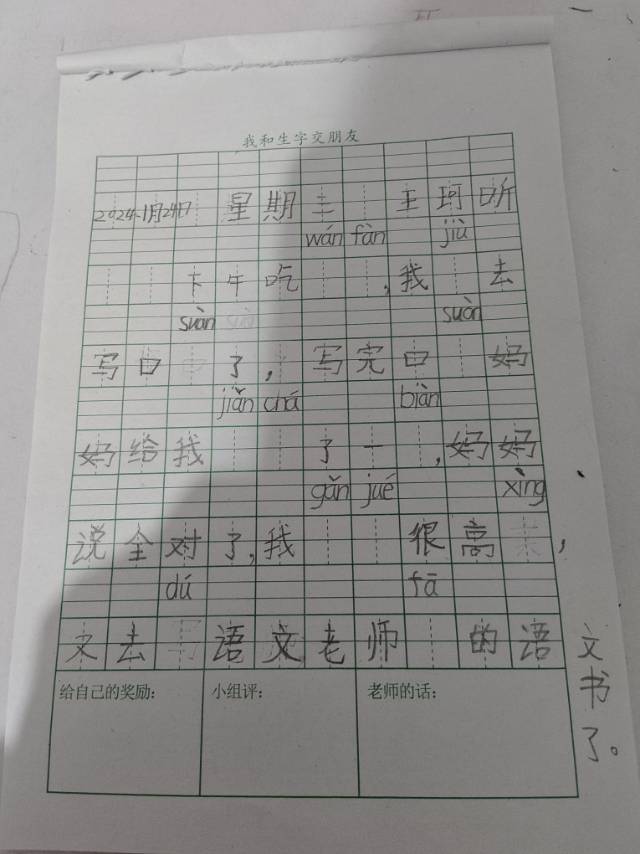 我和生字交朋友
2024年1月24日 星期三 王珂昕
wán fàn jiù
下午吃,我去
suàn suàn
写口了,写完口妈
jiǎn chá biàn
妈给我了一,妈妈
gǎn jué xìng
说全对了,我很高,
dú fā
又去语文老师的语文书了。
给自己的奖励: 小组评: 老师的话: